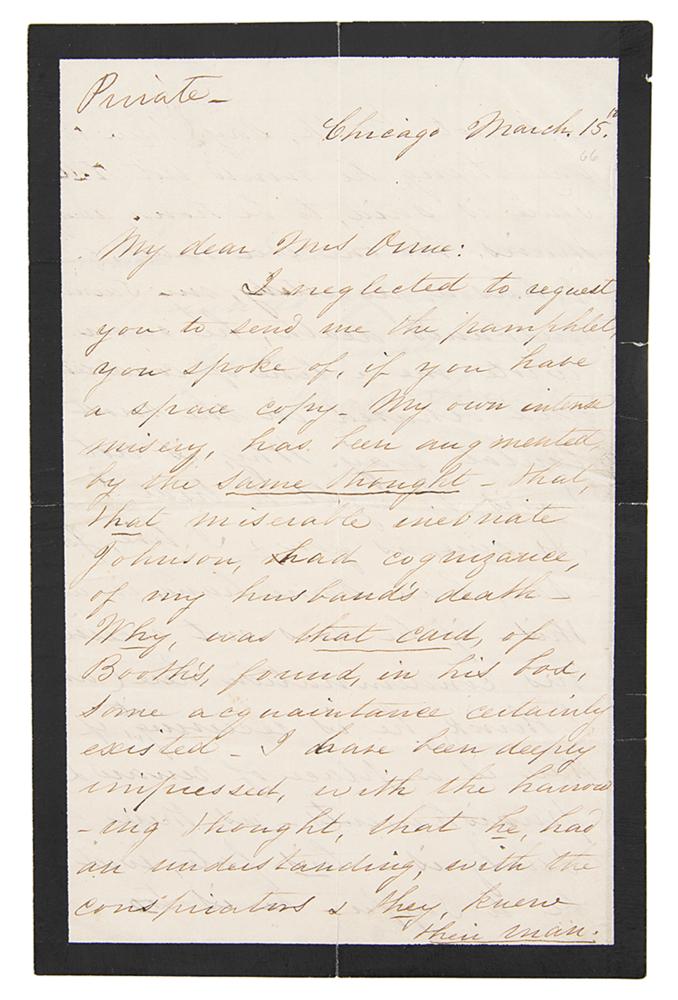 Private -
Chicago March. 15.th
66
My dear Mrs Orne:
I neglected to request
you to send me the pamphlet,
you spoke of, if you have
a spare copy - My own intense
misery, has been augmented,
by the same thought - that,
that miserable inebriate
Johnson, had cognizance,
of my husband's death -
Why, was that card, of
Booth's, found, in his box,
some acquaintance certainly
existed - I have been deeply
impressed, with the harrow
-ing thought, that he, had
an understanding, with the
conspirators & they, knew
their man.